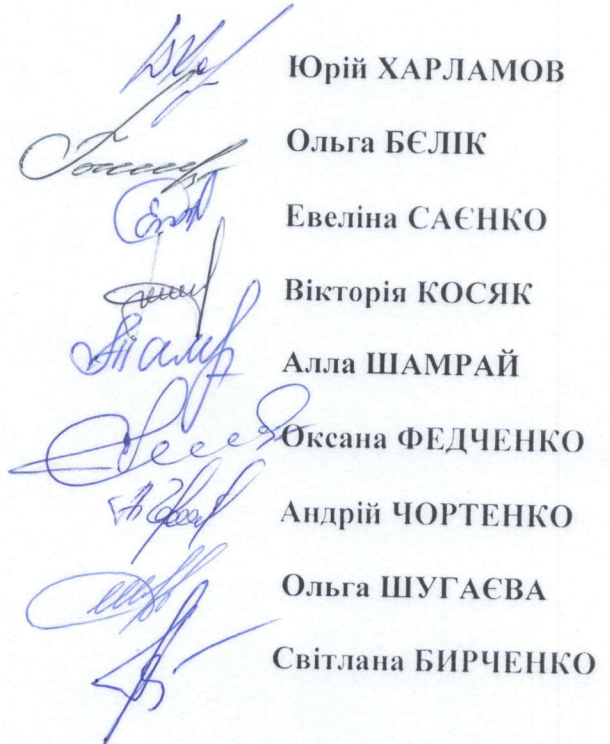 Юрій ХАРЛАМОВ
Ольга БЄЛІК
Евеліна САЄНКО
Вікторія КОСЯК
Алла ШАМРАЙ
Оксана ФЕДЧЕНКО
Андрій ЧОРТЕНКО
Ольга ШУГАЄВА
Світлана БИРЧЕНКО